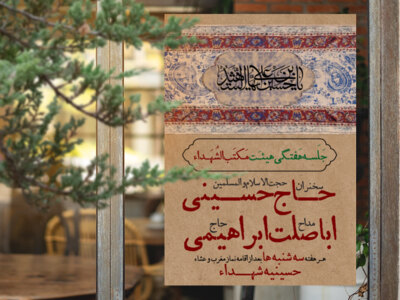 یا حسین بن علی ایها الشهید
جلسه هفتگی هیئت مکتب الشهداء
سخنران حجت الاسلام والمسلمین
حاج حسینی
مداح حاج
اباصلت ابراهیمی
هر هفته سه شنبه ها بعد از اقامه نماز مغرب و عشاء
حسینیه شهداء